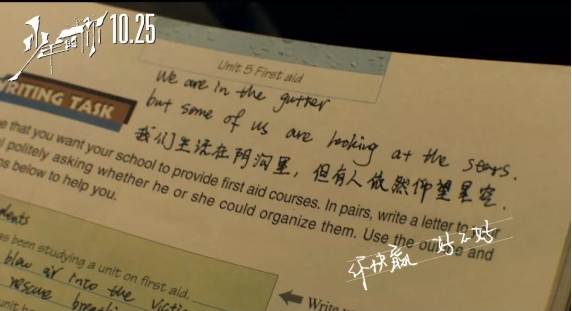 少年的你 10.25
Unit 5 First aid
We are in the gutter
but some of us are looking at the stars.
我们生活在阴沟里，但有人依然仰望星空.
RITING TASK
e that you want your school to provide first aid courses. In pairs, write a letter to
l politely asking whether he or she could organize them. Use the and
ns below to help you.
dents
as been studying a unit on first aid.
blow air into the victi
rescue breathi
unit
Write
好不好